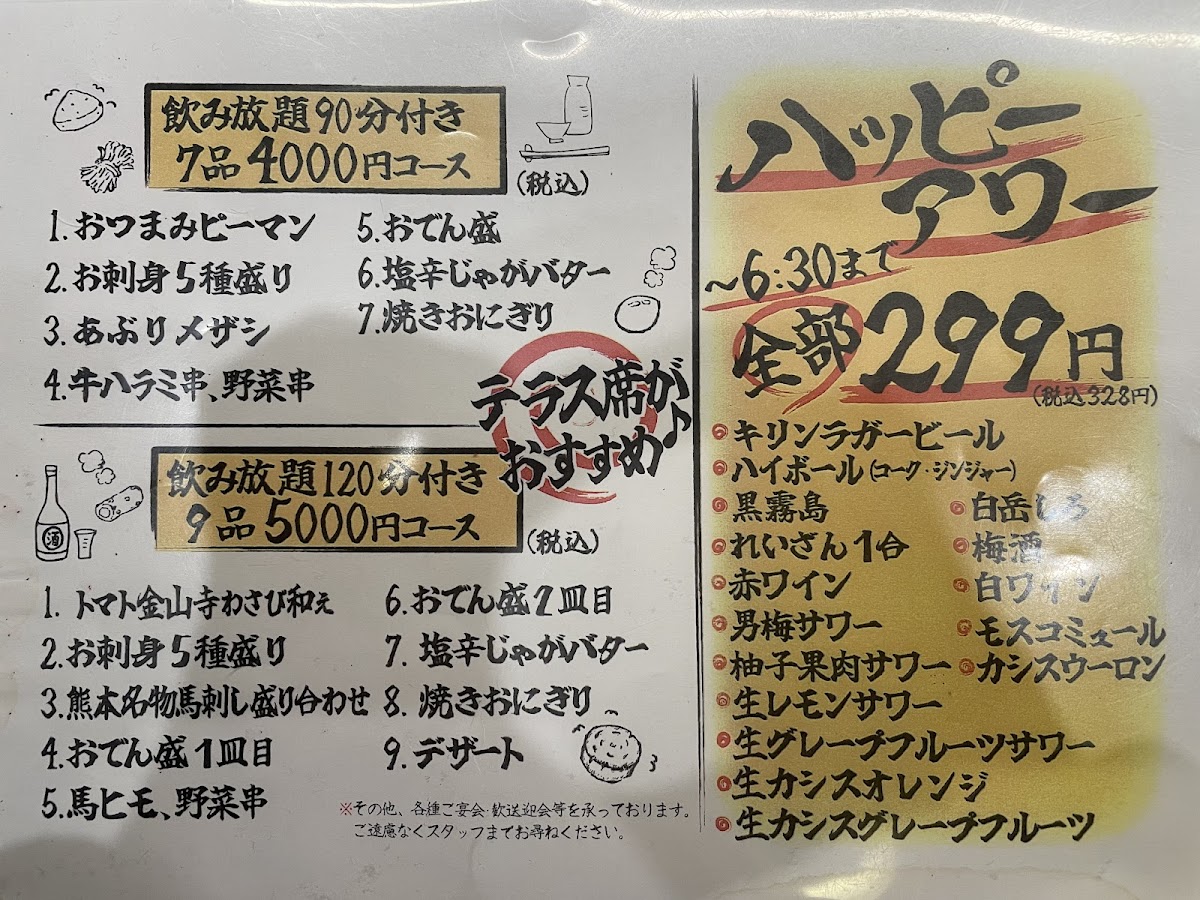 飲み放題90分付き
7品4000円コース
(税込)
1.おつまみピーマン
2.お刺身5種盛り
3.あぶりメザシ
4.牛ハラミ串、野菜串
5.おでん盛
6.塩辛じゃがバター
7.焼きおにぎり
テラス席が
おすすめ♪
飲み放題120分付き
9品5000円コース
(税込)
酒
1.トマト金山寺わさび和え
2.お刺身5種盛り
3.熊本名物馬刺し盛り合わせ
4.おでん盛1皿目
5.馬ヒモ、野菜串
6.おでん盛2皿目
7.塩辛じゃがバター
8.焼きおにぎり
9.デザート
※その他、各種ご宴会・歓送迎会等を承っております。
ご遠慮なくスタッフまでお尋ねください。
ハッピー
アワー
~6:30まで
全部299円
(税込328円)
キリンラガービール
ハイボール(コーク・ジンジャー)
黒霧島 白岳しろ
れいざん1合 梅酒
赤ワイン 白ワイン
男梅サワー モスコミュール
柚子果肉サワー カシスウーロン
生レモンサワー
生グレープフルーツサワー
生カシスオレンジ
生カシスグレープフルーツ